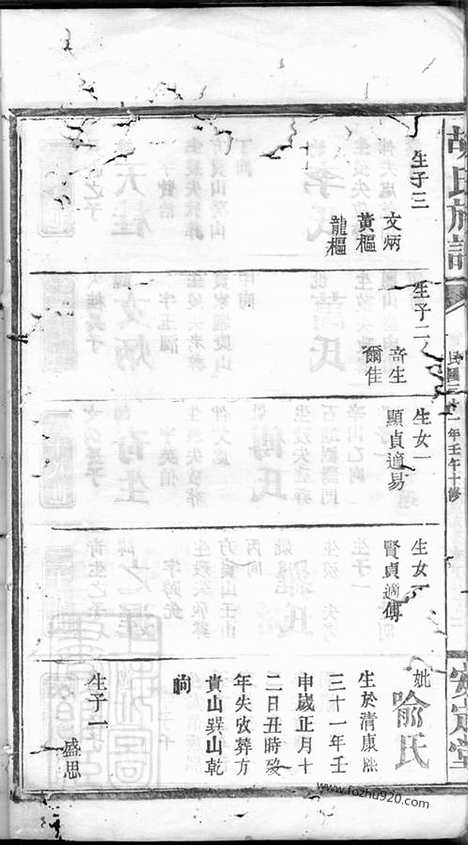 胡氏族譜
民國三十一年壬午十修
安定堂
生子三
文炳
黃樞
龍樞
生子二
奇生
爾佳
生女一
顯貞適易
生女一
賢貞適傅
妣
喻氏
生於清康熙
三十一年壬
申歲正月十
二日丑時歿
年失攷葬方
貴山巽山乾
向
生子一
盛思
www.fozhu920.com